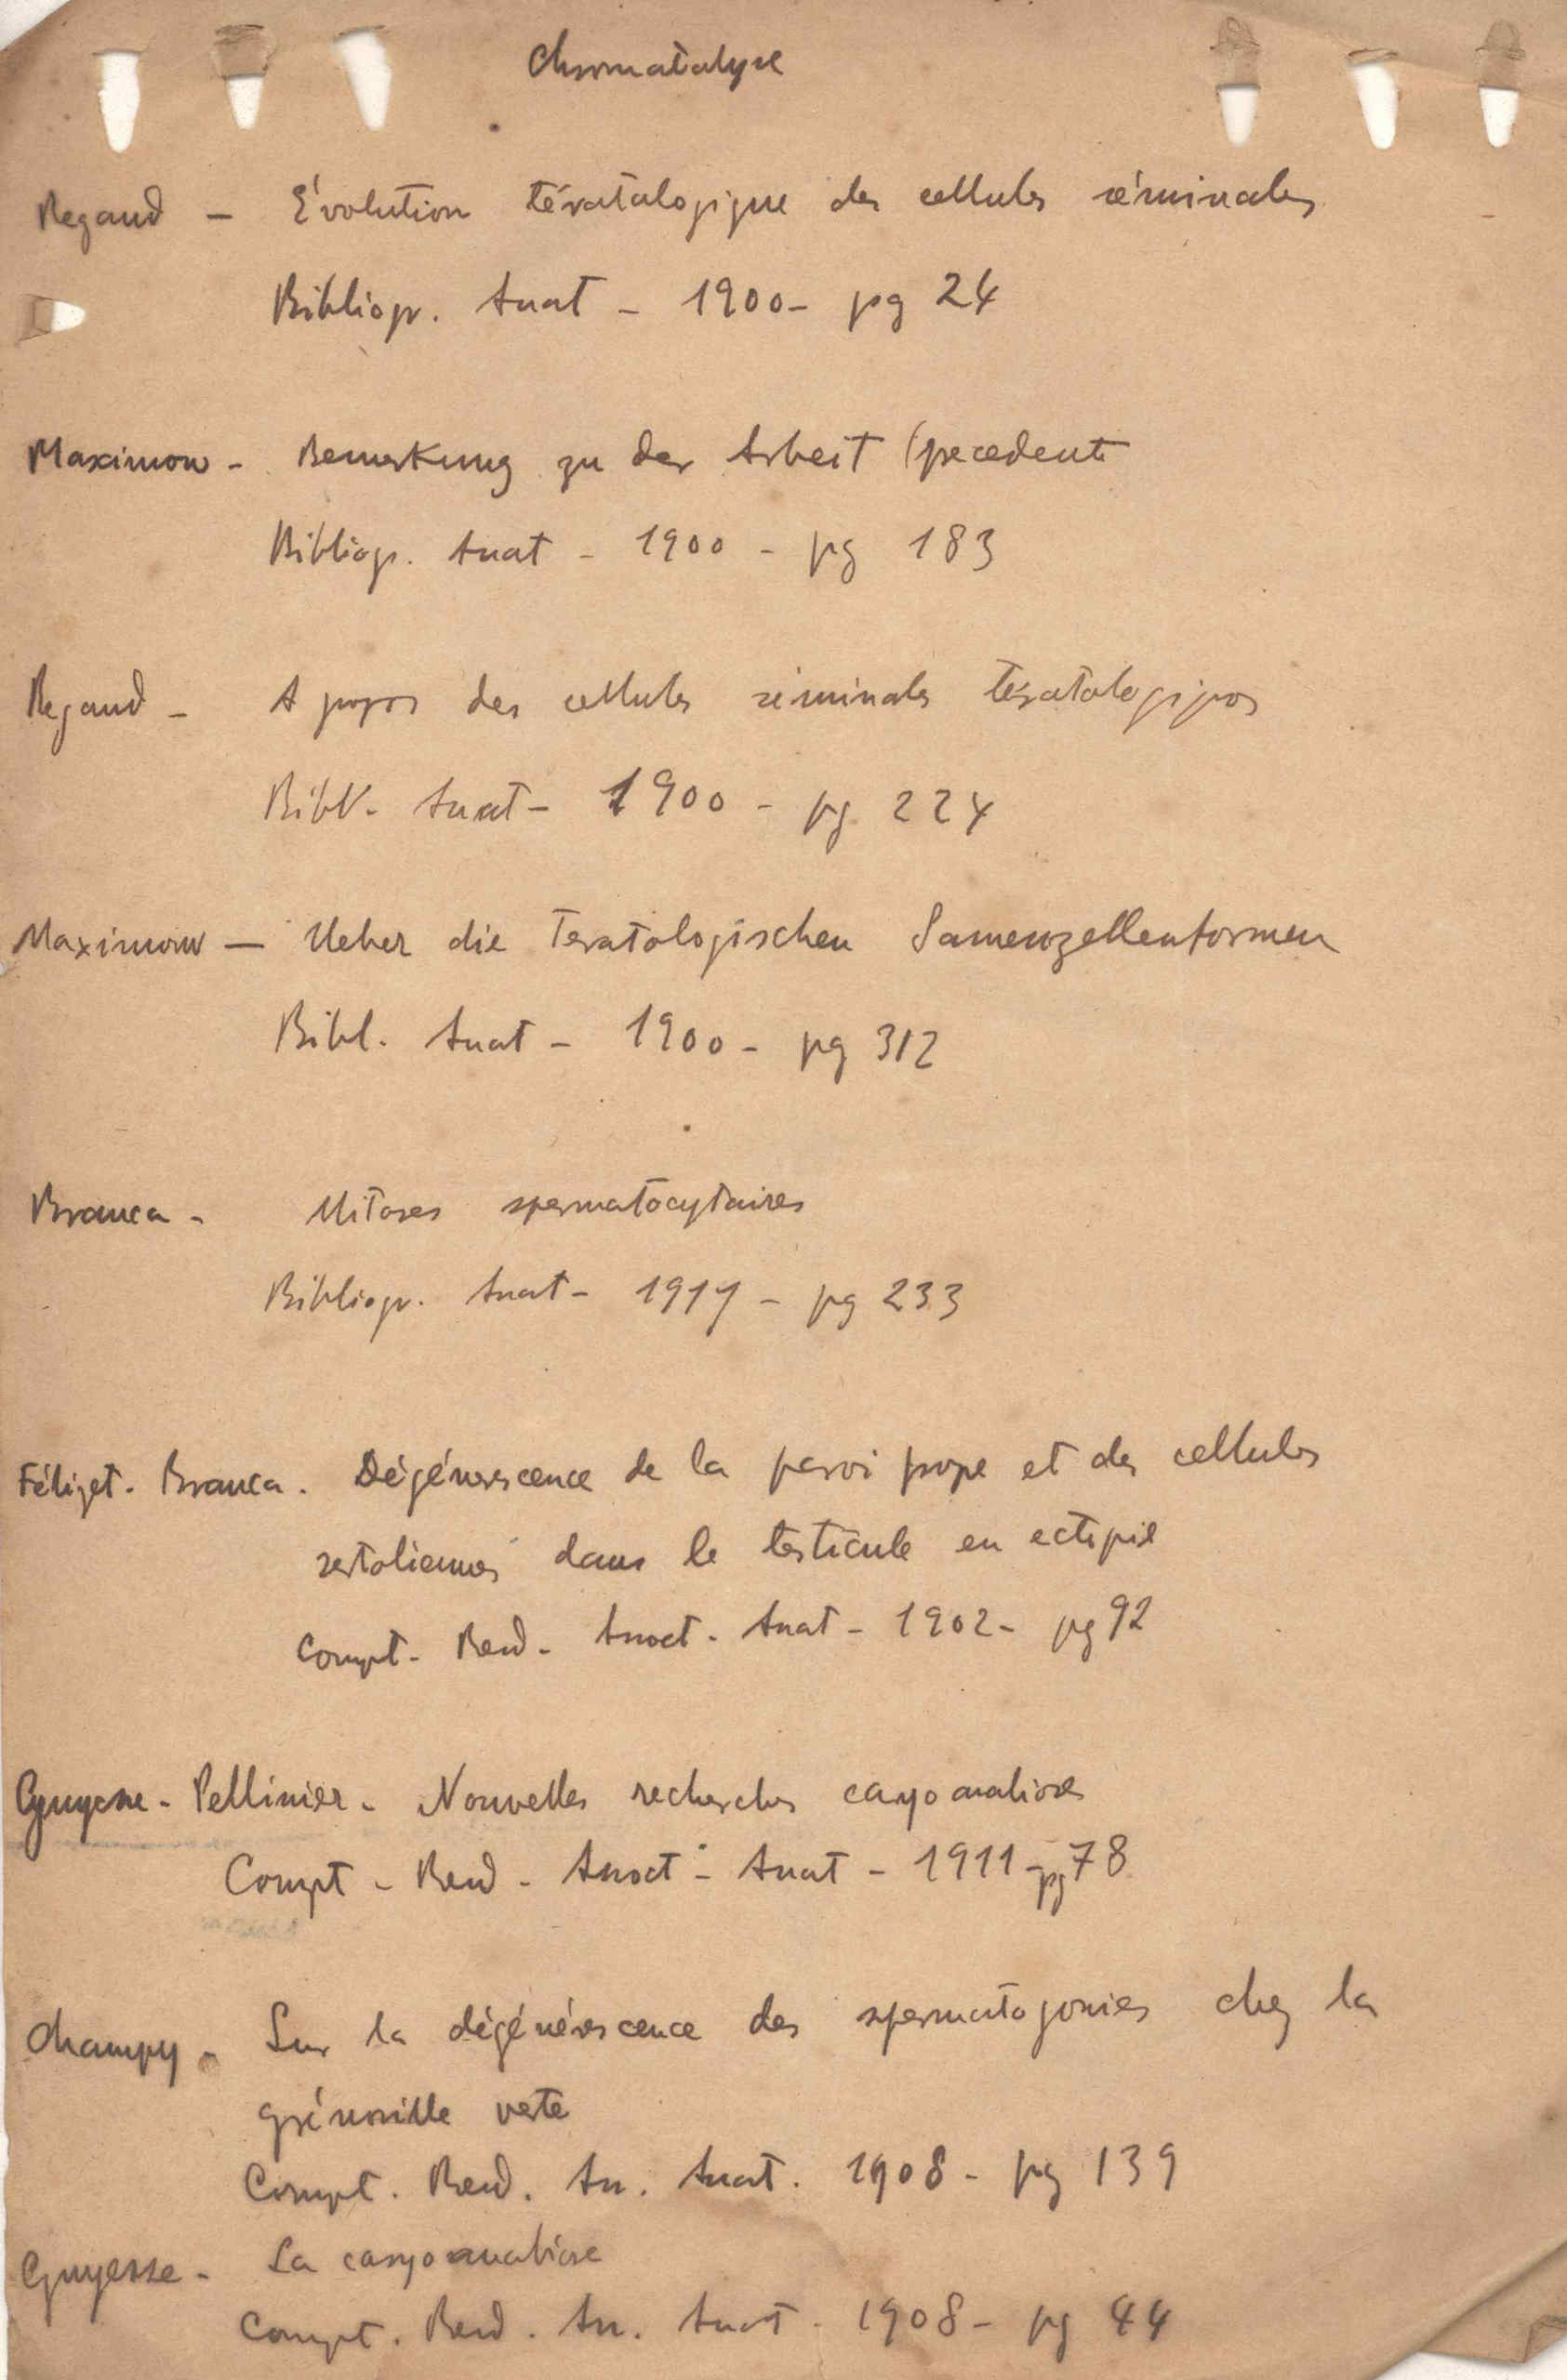 Chromatolyse
Regaud - Évolution tératologique des cellules séminales
Bibliogr. Anat - 1900 - pg 24
Maximow - Bemerkung zu der Arbeit (precedent
Bibliogr. Anat - 1900 - pg 183
Regaud - A propos des cellules séminales tératologiques
Bibl. Anat - 1900 - pg 224
Maximow - Ueber die Teratologischen Samenzellenformen
Bibl. Anat - 1900 - pg 312
Branca - Mitoses spermatocytaires
Bibliogr. Anat - pg 233
Félizet. Branca. Dégénerescence de la paroi propre et des cellules
sertoliennes dans le testicule en ectopie
Compt. Rend. Assoct. Anat - 1902 - pg 92
Guyesse - Pellissier - Nouvelles recherches caryoanabiose
Compt - Rend - Assoct - Anat - 1911 - pg 78
Champy - Sur la dégénérescence des spermatogonies chez la
grénouille verte
Compt. Rend. As. Anat. 1908 - pg 139
Guyesse - La caryoanabiose
Compt. Rend. As. Anat - 1908 - pg 44